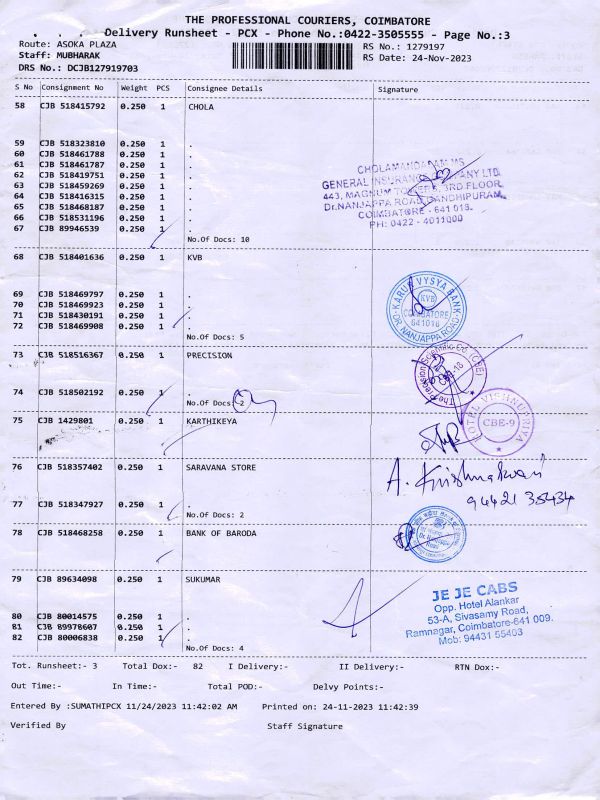 THE PROFESSIONAL COURIERS, COIMBATORE
Delivery Runsheet - PCX - Phone No.:0422-3505555 - Page No.:3
Route: ASOKA PLAZA RS No.: 1279197
Staff: MUBHARAK RS Date: 24-Nov-2023
DRS No.: DCJB127919703
S No Consignment No Weight PCS Consignee Details Signature
58 CJB 518415792 0.250 1 CHOLA
59 CJB 518323810 0.250 1 .
60 CJB 518461788 0.250 1 .
61 CJB 518461787 0.250 1 .
62 CJB 518419751 0.250 1 .
63 CJB 518459269 0.250 1 .
64 CJB 518416315 0.250 1 .
65 CJB 518468187 0.250 1 .
66 CJB 518531196 0.250 1 .
67 CJB 89946539 0.250 1 .
No.Of Docs: 10
CHOLAMANDALAM MS
GENERAL INSURANCE COMPANY LTD
443, MAGNUM TOWERS 3RD FLOOR
Dr.NANJAPPA ROAD, GANDHIPURAM,
COIMBATORE - 641 018.
PH: 0422 - 4011000
68 CJB 518401636 0.250 1 KVB
69 CJB 518469797 0.250 1 .
70 CJB 518469923 0.250 1 .
71 CJB 518430191 0.250 1 .
72 CJB 518469908 0.250 1 .
No.Of Docs: 5
KARUR VYSYA BANK
KVB
COIMBATORE
641018
DR. NANJAPPA ROAD
73 CJB 518516367 0.250 1 PRECISION
74 CJB 518502192 0.250 1 .
No.Of Docs: 2
The Precision Scientific Co. (CBE)
CBE-18
75 CJB 1429801 0.250 1 KARTHIKEYA
HOTEL VISHNUPRIYA
CBE-9
76 CJB 518357402 0.250 1 SARAVANA STORE
77 CJB 518347927 0.250 1 .
No.Of Docs: 2
94421 35434
78 CJB 518468258 0.250 1 BANK OF BARODA
79 CJB 89634098 0.250 1 SUKUMAR
80 CJB 80014575 0.250 1 .
81 CJB 89978607 0.250 1 .
82 CJB 80006838 0.250 1 .
No.Of Docs: 4
JE JE CABS
Opp. Hotel Alankar
53-A, Sivasamy Road,
Ramnagar, Coimbatore-641 009.
Mob: 94431 55403
Tot. Runsheet:- 3 Total Dox:- 82 I Delivery:- II Delivery:- RTN Dox:-
Out Time:- In Time:- Total POD:- Delvy Points:-
Entered By :SUMATHIPCX 11/24/2023 11:42:02 AM Printed on: 24-11-2023 11:42:39
Verified By Staff Signature